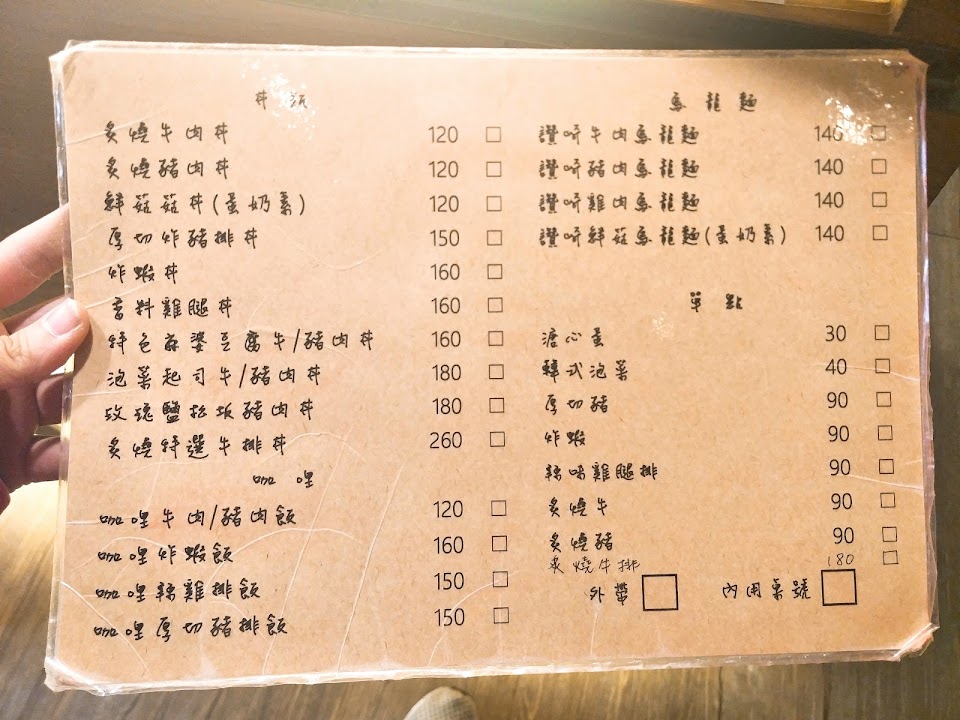 丼飯
炙燒牛肉丼 120 □
炙燒豬肉丼 120 □
鮮菇菇丼(蛋奶素) 120 □
厚切炸豬排丼 150 □
炸蝦丼 160 □
香料雞腿丼 160 □
特色麻婆豆腐牛/豬肉丼 160 □
泡菜起司牛/豬肉丼 180 □
玫瑰鹽松坂豬肉丼 180 □
炙燒特選牛排丼 260 □
咖哩
咖哩牛肉/豬肉飯 120 □
咖哩炸蝦飯 160 □
咖哩辣雞排飯 150 □
咖哩厚切豬排飯 150 □
烏龍麵
讚岐牛肉烏龍麵 140 □
讚岐豬肉烏龍麵 140 □
讚岐雞肉烏龍麵 140 □
讚岐鮮菇烏龍麵(蛋奶素) 140 □
單點
溏心蛋 30 □
韓式泡菜 40 □
厚切豬 90 □
炸蝦 90 □
辣味雞腿排 90 □
炙燒牛 90 □
炙燒豬 90 □
炙燒牛排 180 □
外帶 □ 內用桌號 □